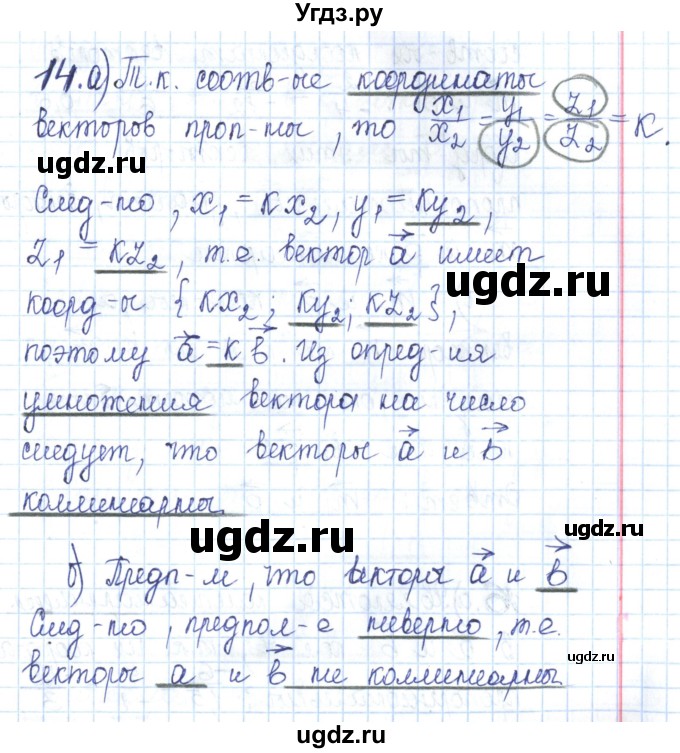 Угдз.ру
14.а) Т.к. соотв-ые координаты
векторов проп-ны, то x₁/x₂ = y₁/y₂ = z₁/z₂ = к.
ugdz.ru
След-но, x₁ = кx₂, y₁ = кy₂,
z₁ = кz₂, т.е. вектор a⃗ имеет
ugdz.ru
коорд-ы {кx₂; кy₂; кz₂},
поэтому a⃗ = к b⃗. Из опред-ия
ugdz.ru
умножения вектора на число
следует, что векторы a⃗ и b⃗
ugdz.ru
коллинеарны.
ugdz.ru
б) Предп-м, что векторы a⃗ и b⃗
След-но, предпол-е неверно, т.е.
ugdz.ru
ugdz.ru
векторы a и b⃗ не коллинеарны
ugdz.ru